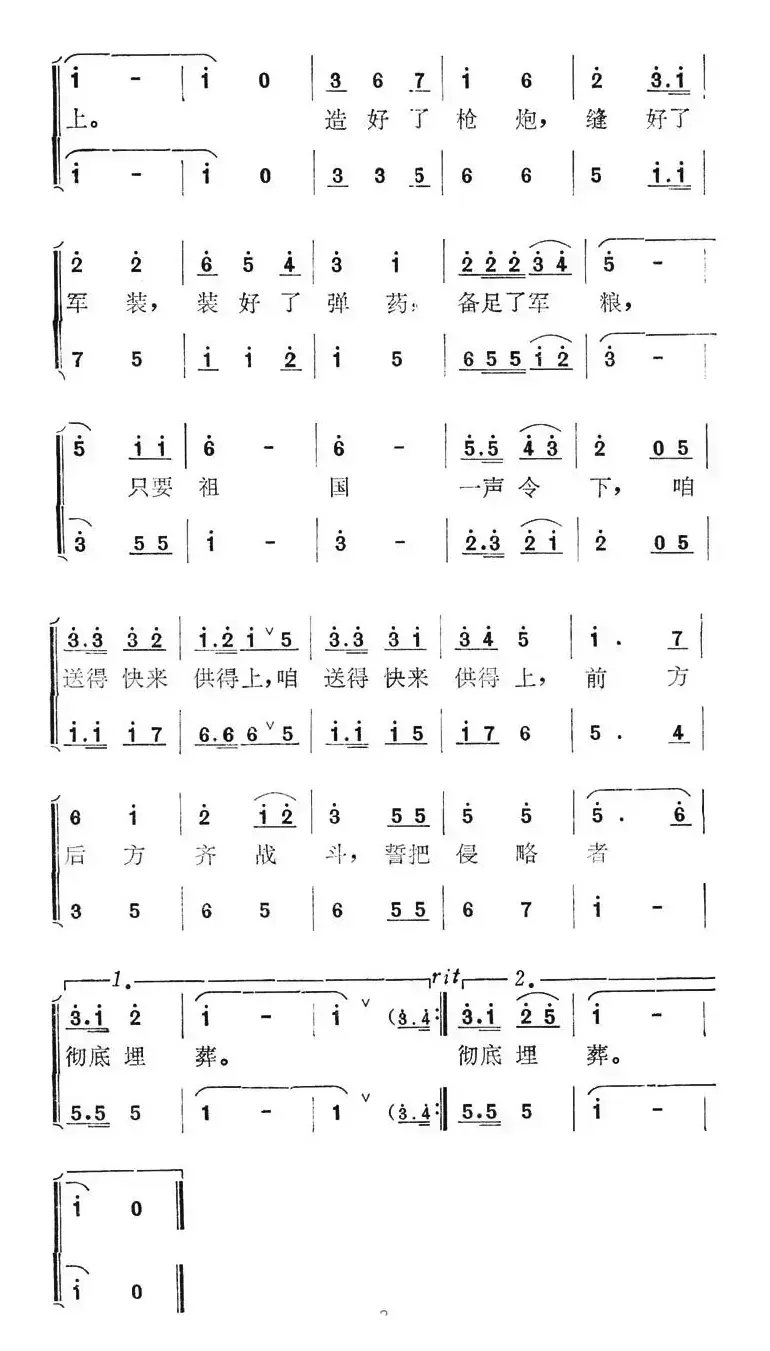 i - | i 0 | 3 6 7 | i 6 | 2 3.i |
上。 造好了枪炮，缝好了
i - | i 0 | 3 3 5 | 6 6 | 5 i.i |
2 2 | 6 5 4 | 3 i | 2 2 2 3 4 | 5 - |
军装，装好了弹药，备足了军粮，
7 5 | i i 2 | i 5 | 6 5 5 i 2 | 3 - |
5 i i | 6 - | 6 - | 5.5 4 3 | 2 0 5 |
只要祖国一声令下，咱
3 5 5 | i - | 3 - | 2.3 2 i | 2 0 5 |
3.3 3 2 | i.2 i ∨ 5 | 3.3 3 i | 3 4 5 | i . 7 |
送得快来供得上，咱送得快来供得上，前方
i.i i 7 | 6.6 6 ∨ 5 | i.i i 5 | i 7 6 | 5 . 4 |
6 i | 2 i 2 | 3 5 5 | 5 5 | 5 . 6 |
后方齐战斗，誓把侵略者
3 5 | 6 5 | 6 5 5 | 6 7 | i - |
1. rit 2.
3.i 2 | i - | i ∨ (3.4 :| 3.i 2 5 | i - |
彻底埋葬。 彻底埋葬。
5.5 5 | 1 - | 1 ∨ (3.4 :| 5.5 5 | i - |
i 0
i 0